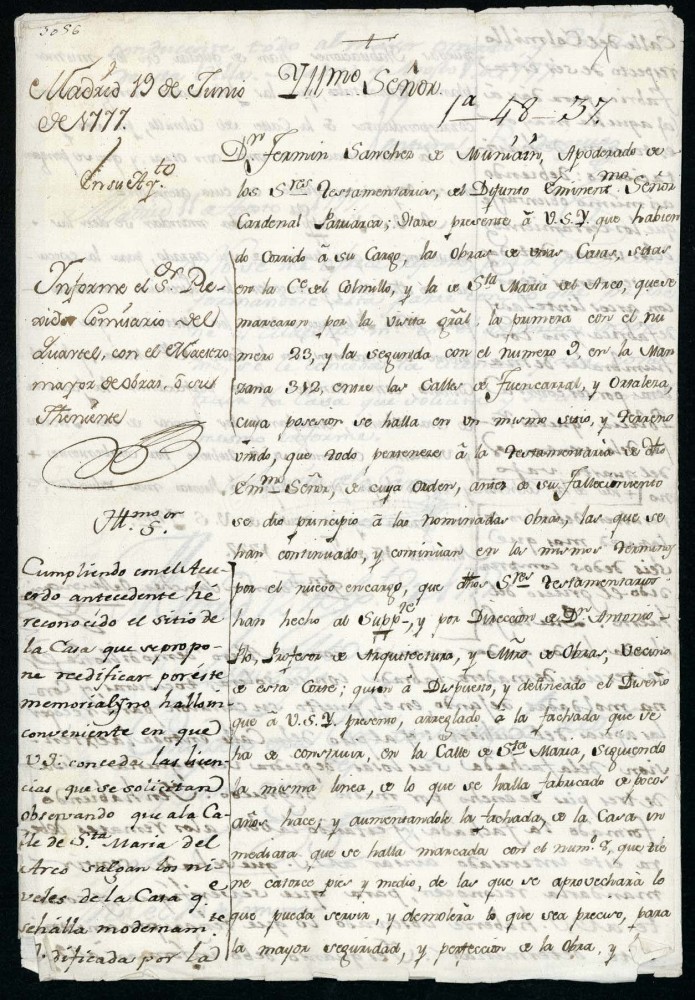 5086
Madrid 19 de Junio
de 1777.
Yllmo Señor.
1a 48 37
En su Aq.to
Informe el Sr. Re-
xidor Comisario del
Quartel, con el Maestro
mayor de obras, ô su
Theniente
Illmo. Sor.
Cumpliendo con el Acu-
erdo antecedente hê
reconocido el sitio de
la Casa que se propo-
ne reedificar por éste
memorial y no hallo in-
conveniente en que
V.S. conceda las licen-
cias que se solicitan
observando que a la Ca-
lle de Sta. Maria del
Arco salgan los ni-
veles de la Casa qe.
se halla modernamte.
dificada por la
Dn. Fermin Sanchez de Muniain, Apoderado de
los Sres. Testamentarios, del Difunto Eminentmo. Señor
Cardenal Patriarca; Haze presente â V.S.Y. que habien
do Corrido â su Cargo, las Obras de unas Casas, sitas
en la Ce. del Colmillo, y la de Sta Maria del Arco, que se
marcaron por la visita gral, la primera con el nu
mero 23, y la segunda con el numero 9, en la Man
zana 312, entre las Calles de Fuencarral, y Ortaleza,
cuya posesion se halla en un mismo sitio, y terreno
unido, que todo pertenece â la Testamentaria de dho
Emmo. Señor, de cuya Orden, antes de su Fallecimiento
se dio principio â las nominadas Obras, las que se
han continuado, y continuan en los mismos terminos
por el nuevo encargo, que dhos Sres Testamentarios
han hecho al Suppte, y por Direccion de Dn. Antonio
Plo, Profesor de Arquitectura, y Mro de Obras, Vecino
de esta Corte; quien â Dispuesto, y delineado el Diseño
que â V.S.Y. presento, arreglado â la fachada que se
ha de construir, en la Calle de Sta Maria, siguiendo
la misma linea, de lo que se halla fabricado de pocos
años hace, y aumentandole la fachada de la Casa in
mediata que se halla marcada con el num.o 8, que tie
ne catorce pies y medio, de las que se aprovecharâ lo
que pueda servir, y demolerâ lo que sea preciso, para
la mayor seguridad, y perfeccion de la Obra, y